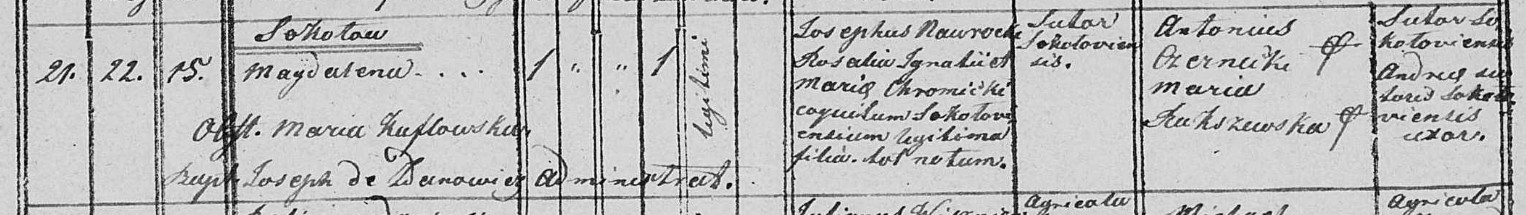 Sokołow
21. 22. 15. Magdalena . . . . 1 " " 1 legitimi
Obst. Maria
Bapt. Joseph de Danowicz Administrat.
Josephus Nawrocki
Rosalia Ignatii et
Marię Chromicki
Sokołovi
ensium legitima
filia.
Sutor
Sokołovien
sis.
Antonius
Czernicki
Maria
Rukszewska
Sutor So
kołoviensis
Andreę su
toris Sokoło
viensis
uxor.
Agricola
Michael
Agricola